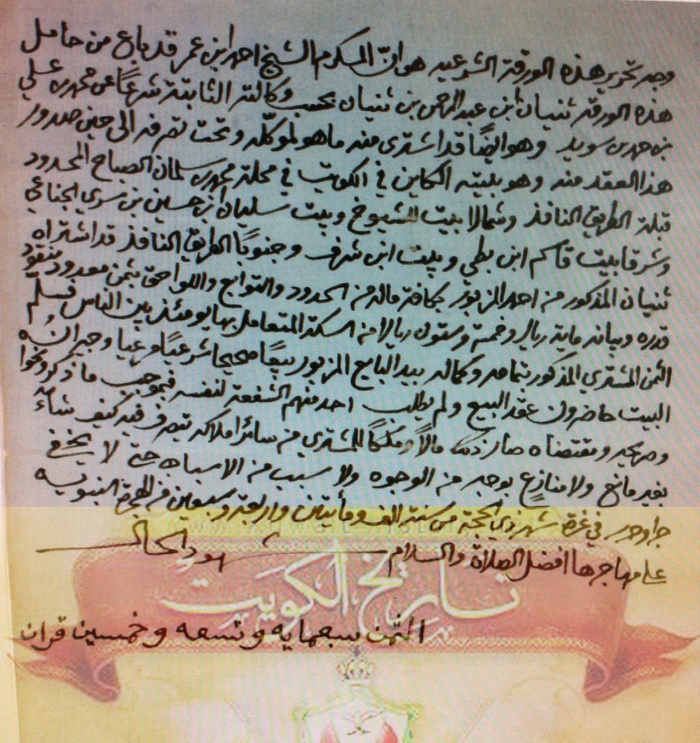 وجه تحرير هذه الورقة الشرعيه هو انّ المكرم الشيخ احمد ابن عمر قد باع من حامل
هذه الورقة ثنيان ابن عبد الرحمن بن ثنيان بحسب وكالته الثابتة شرعًا عن محمد بن علي
بن حمد بن سويد وهو ايضًا قد اشترى منه ما هو لموكله وتحت تصرفه الى حين صدور
هذا العقد منه وهو بيته الكاين في الكويت في محلة محمد بن سلمان الصباح المحدود
قبلة الطريق النافذ وشمالا بيت الشيوخ وبيت سليمان ابن حسين بن سري الجناعي
وشرقا بيت قاسم ابن بطي وبيت ابن شرف وجنوبًا الطريق النافذ قد اشتراه
ثنيان المذكور من احمد المزبور بكافة ماله من الحدود والتوابع واللواحق بثمن معدود منقود
قدره وبيانه ماية ريال وخمسة وستون ريالا من السكة المتعامل بها يومئذ بين الناس فسلّم
الثمن المشتري المذكور بتمامه وكماله بيد البايع المزبور بيعًا صحيحا شرعيًا مرعيا وجيران
البيت حاضرون عقد البيع ولم يطلب احد منهم الشفعة لنفسه فبموجب ما ذكر ونحوا
وصحيحه ومقتضاه صار ذلك مالاً وملكًا للمشتري من سائر املاكه يتصرف فيه كيف شاء
بغير مانع ولا منازع بوجه من الوجوه ولا سبب من الاسباب حتى لا يخفى
جرا وحرر في غرة شهر ذي الحجة من سنة الف ومأيتين واربعة وسبعين من الهجرة النبويه
على مهاجرها افضل الصلاة والسلام شهود الحال
تاريخ الكويت
الثمن سبعمايه وتسعه وخمسين قران